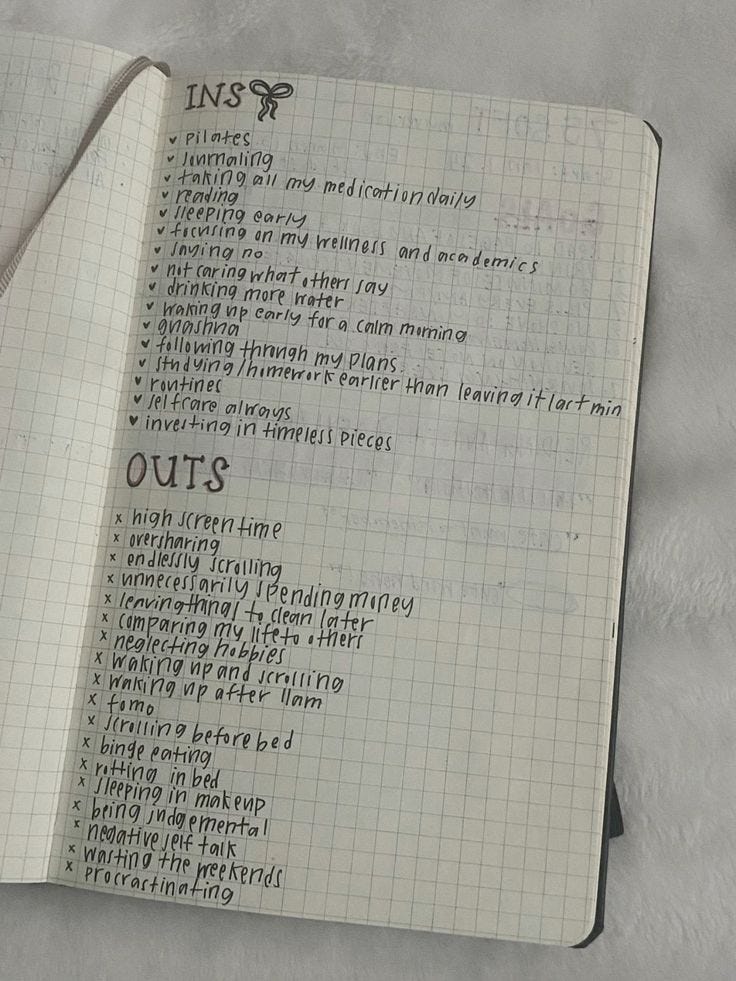 INS
pilates
journaling
taking all my medication daily
reading
sleeping early
focusing on my wellness and academics
saying no
not caring what others say
drinking more water
waking up early for a calm morning
guashna
following through my plans
studying/homework earlier than leaving it last min
routines
selfcare always
investing in timeless pieces
OUTS
x high screen time
x oversharing
x endlessly scrolling
x unnecessarily spending money
x leaving things to clean later
x comparing my life to others
x neglecting hobbies
x waking up and scrolling
x waking up after 11am
x fomo
x scrolling before bed
x binge eating
x rotting in bed
x sleeping in makeup
x being judgemental
x negative self talk
x wasting the weekends
x procrastinating